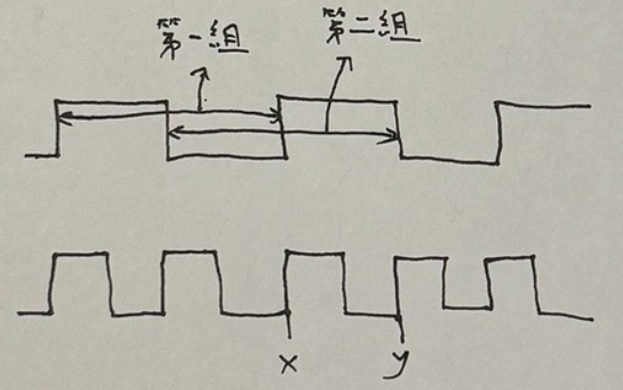 第一組
第二組
x
y